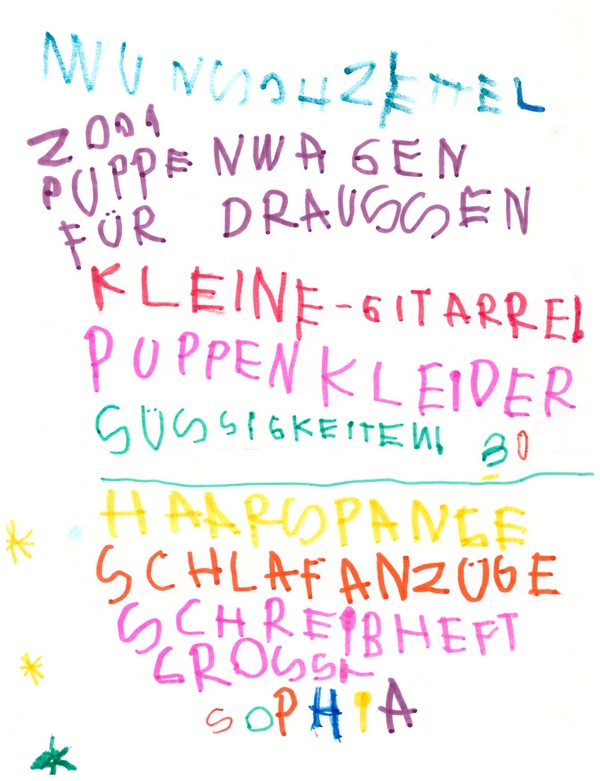 WUNSCHZETTEL
2001
PUPPENWAGEN
FÜR DRAUSSEN
KLEINE-GITARRE!
PUPPENKLEIDER
SÜSSIGKEITEN! 30
HAARSPANGE
SCHLAFANZÜGE
SCHREIBHEFT
GROSSE
SOPHIA